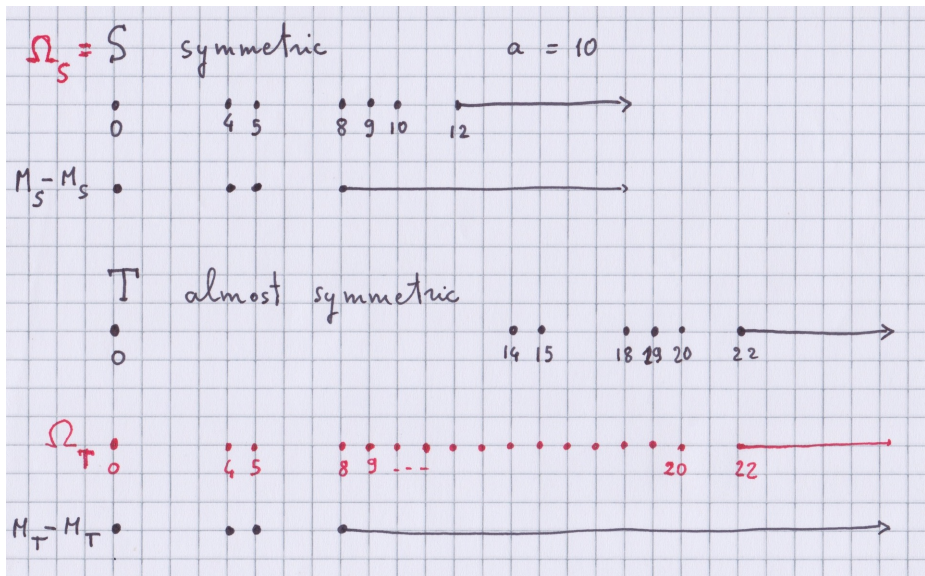 Ω_S = S symmetric a = 10
0 4 5 8 9 10 12
M_S - M_S
T almost symmetric
0 14 15 18 19 20 22
Ω_T 0 4 5 8 9 --- 20 22
M_T - M_T